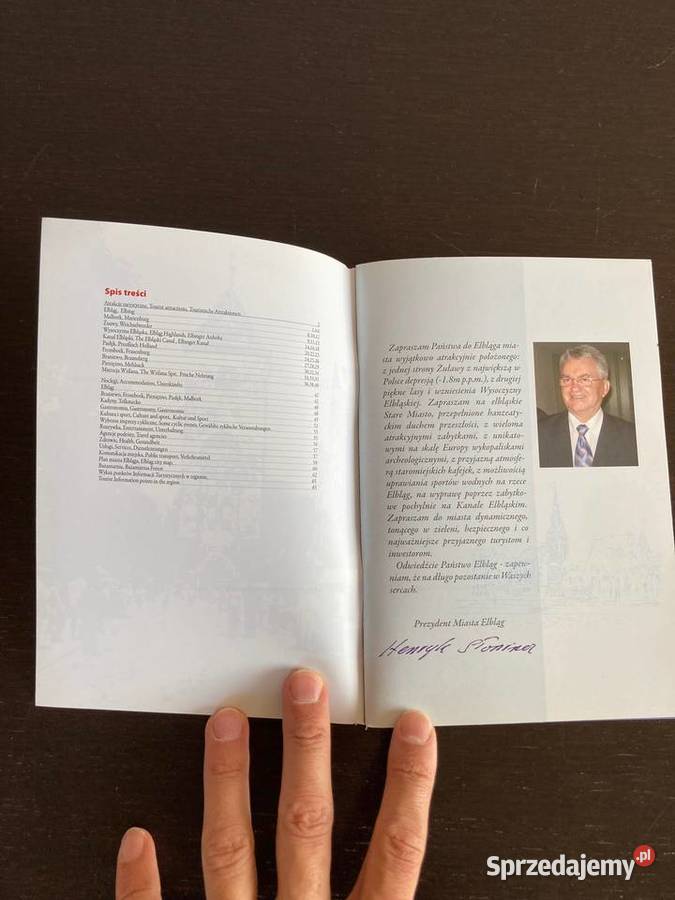 Spis treści
Atrakcje turystyczne, Tourist attractions, Touristische Attraktionen
Elbląg, Elbing
Malbork, Marienburg
Żuławy, Weichselwerder
Wysoczyzna Elbląska, Elbląg Highlands, Elbinger Anhöhe
Kanał Elbląski, The Elbląski Canal, Elbinger Kanal
Pasłęk, Preußisch Holland
Frombork, Frauenburg
Braniewo, Braunsberg
Pieniężno, Mehlsack
Mierzeja Wiślana, The Wiślana Spit, Frische Nehrung
Noclegi, Accommodation, Unterkünfte
Elbląg
Braniewo, Frombork, Pieniężno, Pasłęk, Malbork
Kadyny, Tolkmicko
Gastronomia, Gastronomy, Gastronomie
Kultura i sport, Culture and sport, Kultur und Sport
Wybrane imprezy cykliczne, Some cyclic events, Gewählte zyklische Veranstaltungen
Rozrywka, Entertainment, Unterhaltung
Agencje podróży, Travel agencies
Zdrowie, Health, Gesundheit
Usługi, Services, Dienstleistungen
Komunikacja miejska, Public transport, Verkehrsmittel
Plan miasta Elbląga, Elbląg city map
Bażantarnia, Bażantarnia Forest
Wykaz punktów Informacji Turystycznych w regionie,
Tourist Information points in the region
Zapraszam Państwa do Elbląga mia-
sta wyjątkowo atrakcyjnie położonego:
z jednej strony Żuławy z największą w
Polsce depresją (-1.8m p.p.m.), z drugiej
piękne lasy i wzniesienia Wysoczyzny
Elbląskiej. Zapraszam na elbląskie
Stare Miasto, przepełnione hanzeatyc-
kim duchem przeszłości, z wieloma
atrakcyjnymi zabytkami, z unikato-
wymi na skalę Europy wykopaliskami
archeologicznymi, z przyjazną atmosfe-
rą staromiejskich kafejek, z możliwością
uprawiania sportów wodnych na rzece
Elbląg, na wyprawę poprzez zabytko-
we pochylnie na Kanale Elbląskim.
Zapraszam do miasta dynamicznego,
tonącego w zieleni, bezpiecznego i co
najważniejsze przyjaznego turystom i
inwestorom.
Odwiedźcie Państwo Elbląg - zapew-
niam, że na długo pozostanie w Waszych
sercach.
Prezydent Miasta Elbląg
Henryk Słonina
Sprzedajemy.pl